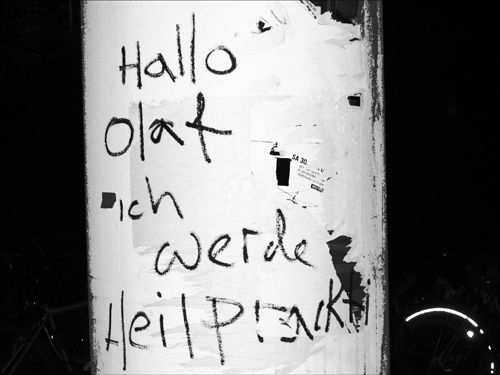 Hallo
Olaf
ich
werde
Heilprackti
SA 30.